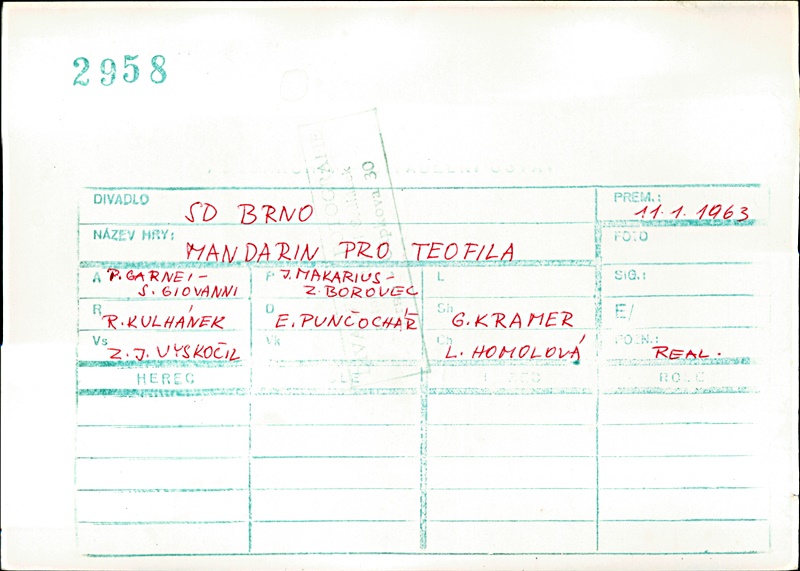 2958
DIVADLO SD BRNO PREM.: 11.1.1963
NÁZEV HRY: MANDARIN PRO TEOFILA FOTO
A P. GARNEI - S. GIOVANNI P J. MAKARIUS - Z. BOROVEC L SIG.:
R R. KULHÁNEK D E. PUNČOCHÁŘ Sh G. KRAMER E/
Vs Z. J. VYSKOČIL Vk Ch L. HOMOLOVÁ POZN.: REAL.
HEREC ROLE